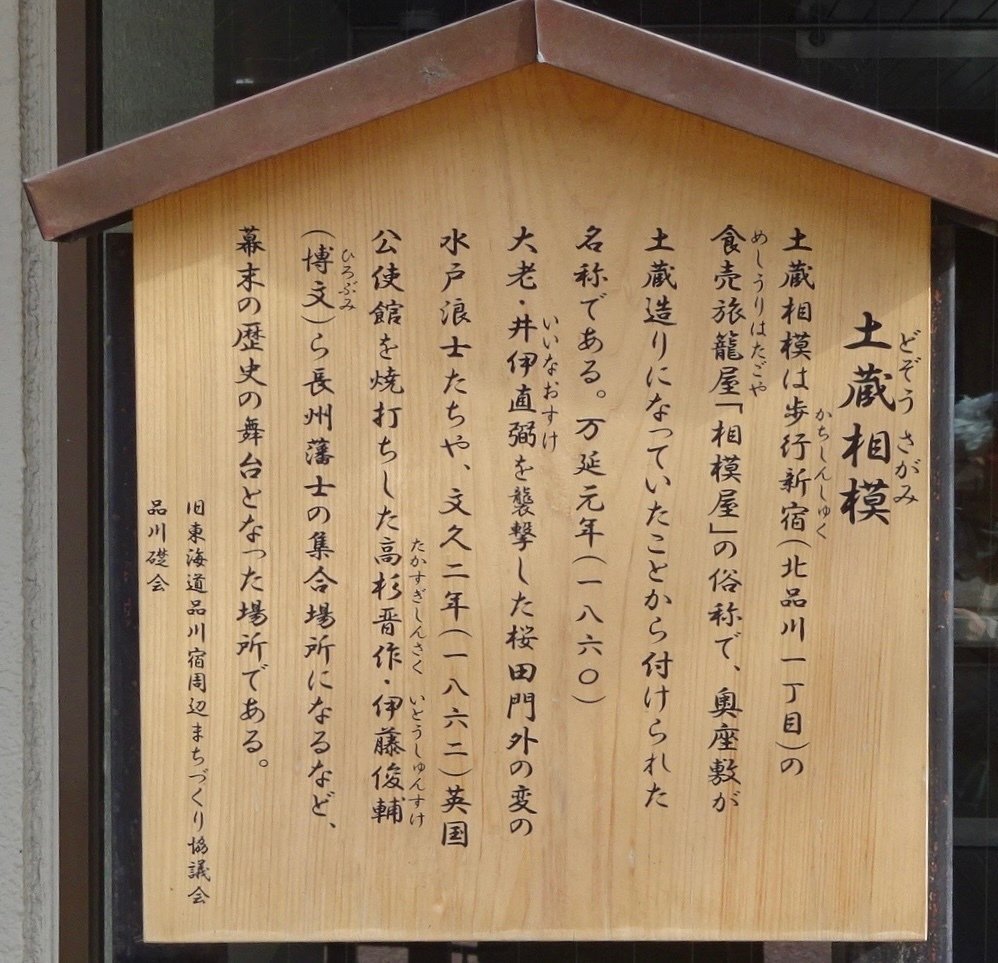 どぞう さがみ
土蔵相模
かちしんしゅく
土蔵相模は歩行新宿(北品川一丁目)の
めしうりはたごや
食売旅籠屋「相模屋」の俗称で、奥座敷が
土蔵造りになっていたことから付けられた
名称である。万延元年(一八六〇)
いいなおすけ
大老・井伊直弼を襲撃した桜田門外の変の
水戸浪士たちや、文久二年(一八六二)英国
たかすぎしんさく いとうしゅんすけ
公使館を焼打ちした高杉晋作・伊藤俊輔
ひろぶみ
(博文)ら長州藩士の集合場所になるなど、
幕末の歴史の舞台となった場所である。
旧東海道品川宿周辺まちづくり協議会
品川礎会